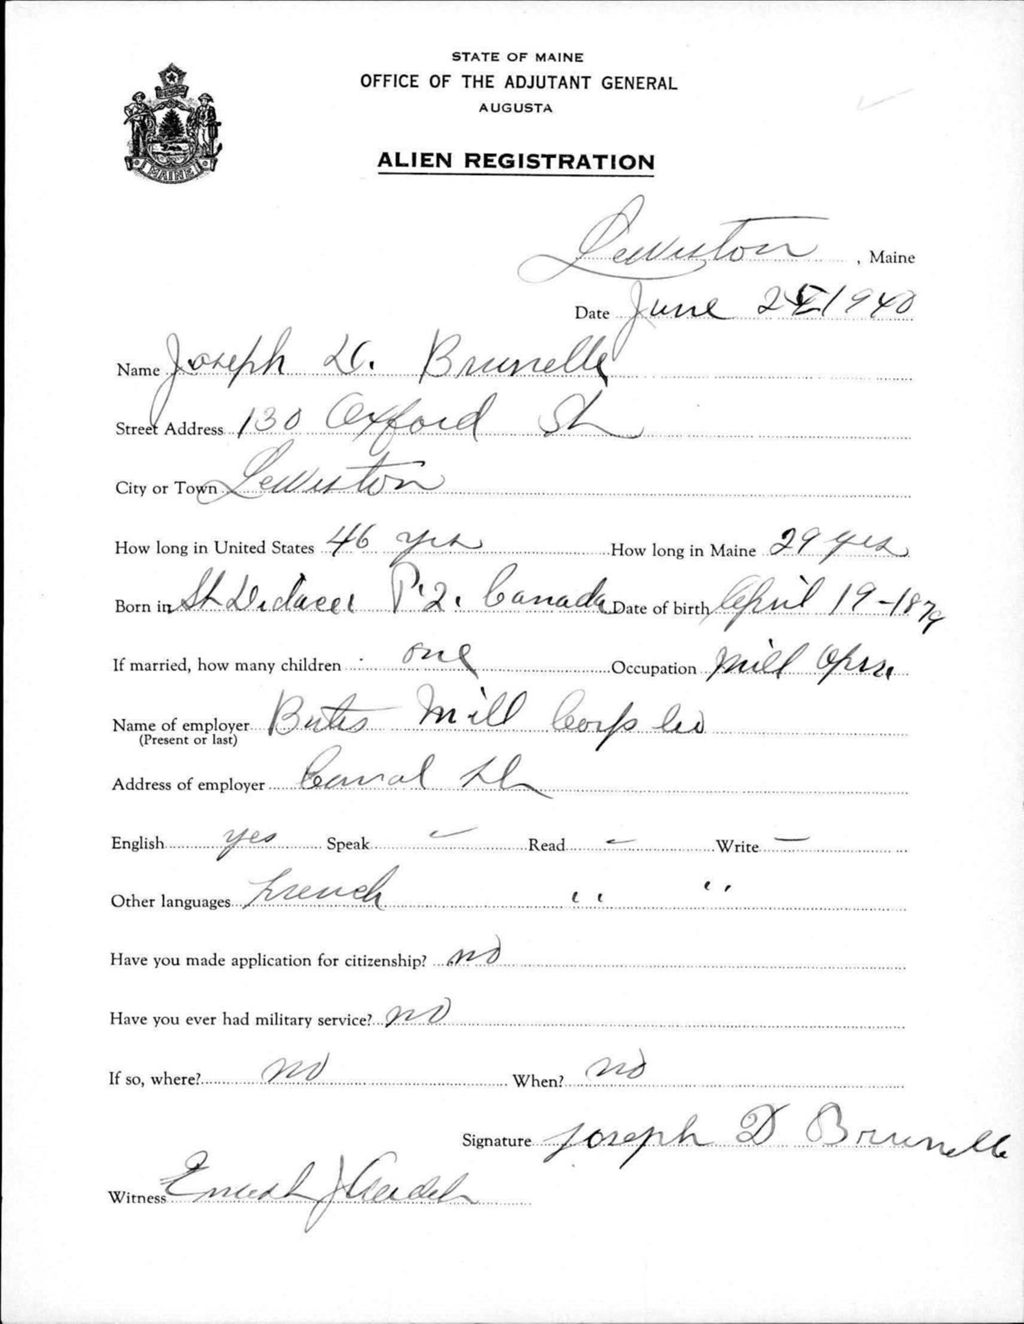 STATE OF MAINE
OFFICE OF THE ADJUTANT GENERAL
AUGUSTA
MAINE
ALIEN REGISTRATION
Lewiston, Maine
Date June 1940
Name Joseph D. Brunelle
Street Address 130 Oxford St
City or Town Lewiston
How long in United States 46 yrs How long in Maine 29 yrs
Born in St Didace P.Q. Canada Date of birth April 19-1879
If married, how many children one Occupation Mill Oper
Name of employer Bates Mill Corp
(Present or last)
Address of employer Canal St
English yes Speak ✓ Read ✓ Write –
Other languages French " "
Have you made application for citizenship? no
Have you ever had military service? no
If so, where? no When? no
Signature Joseph D Brunelle
Witness Ernest J